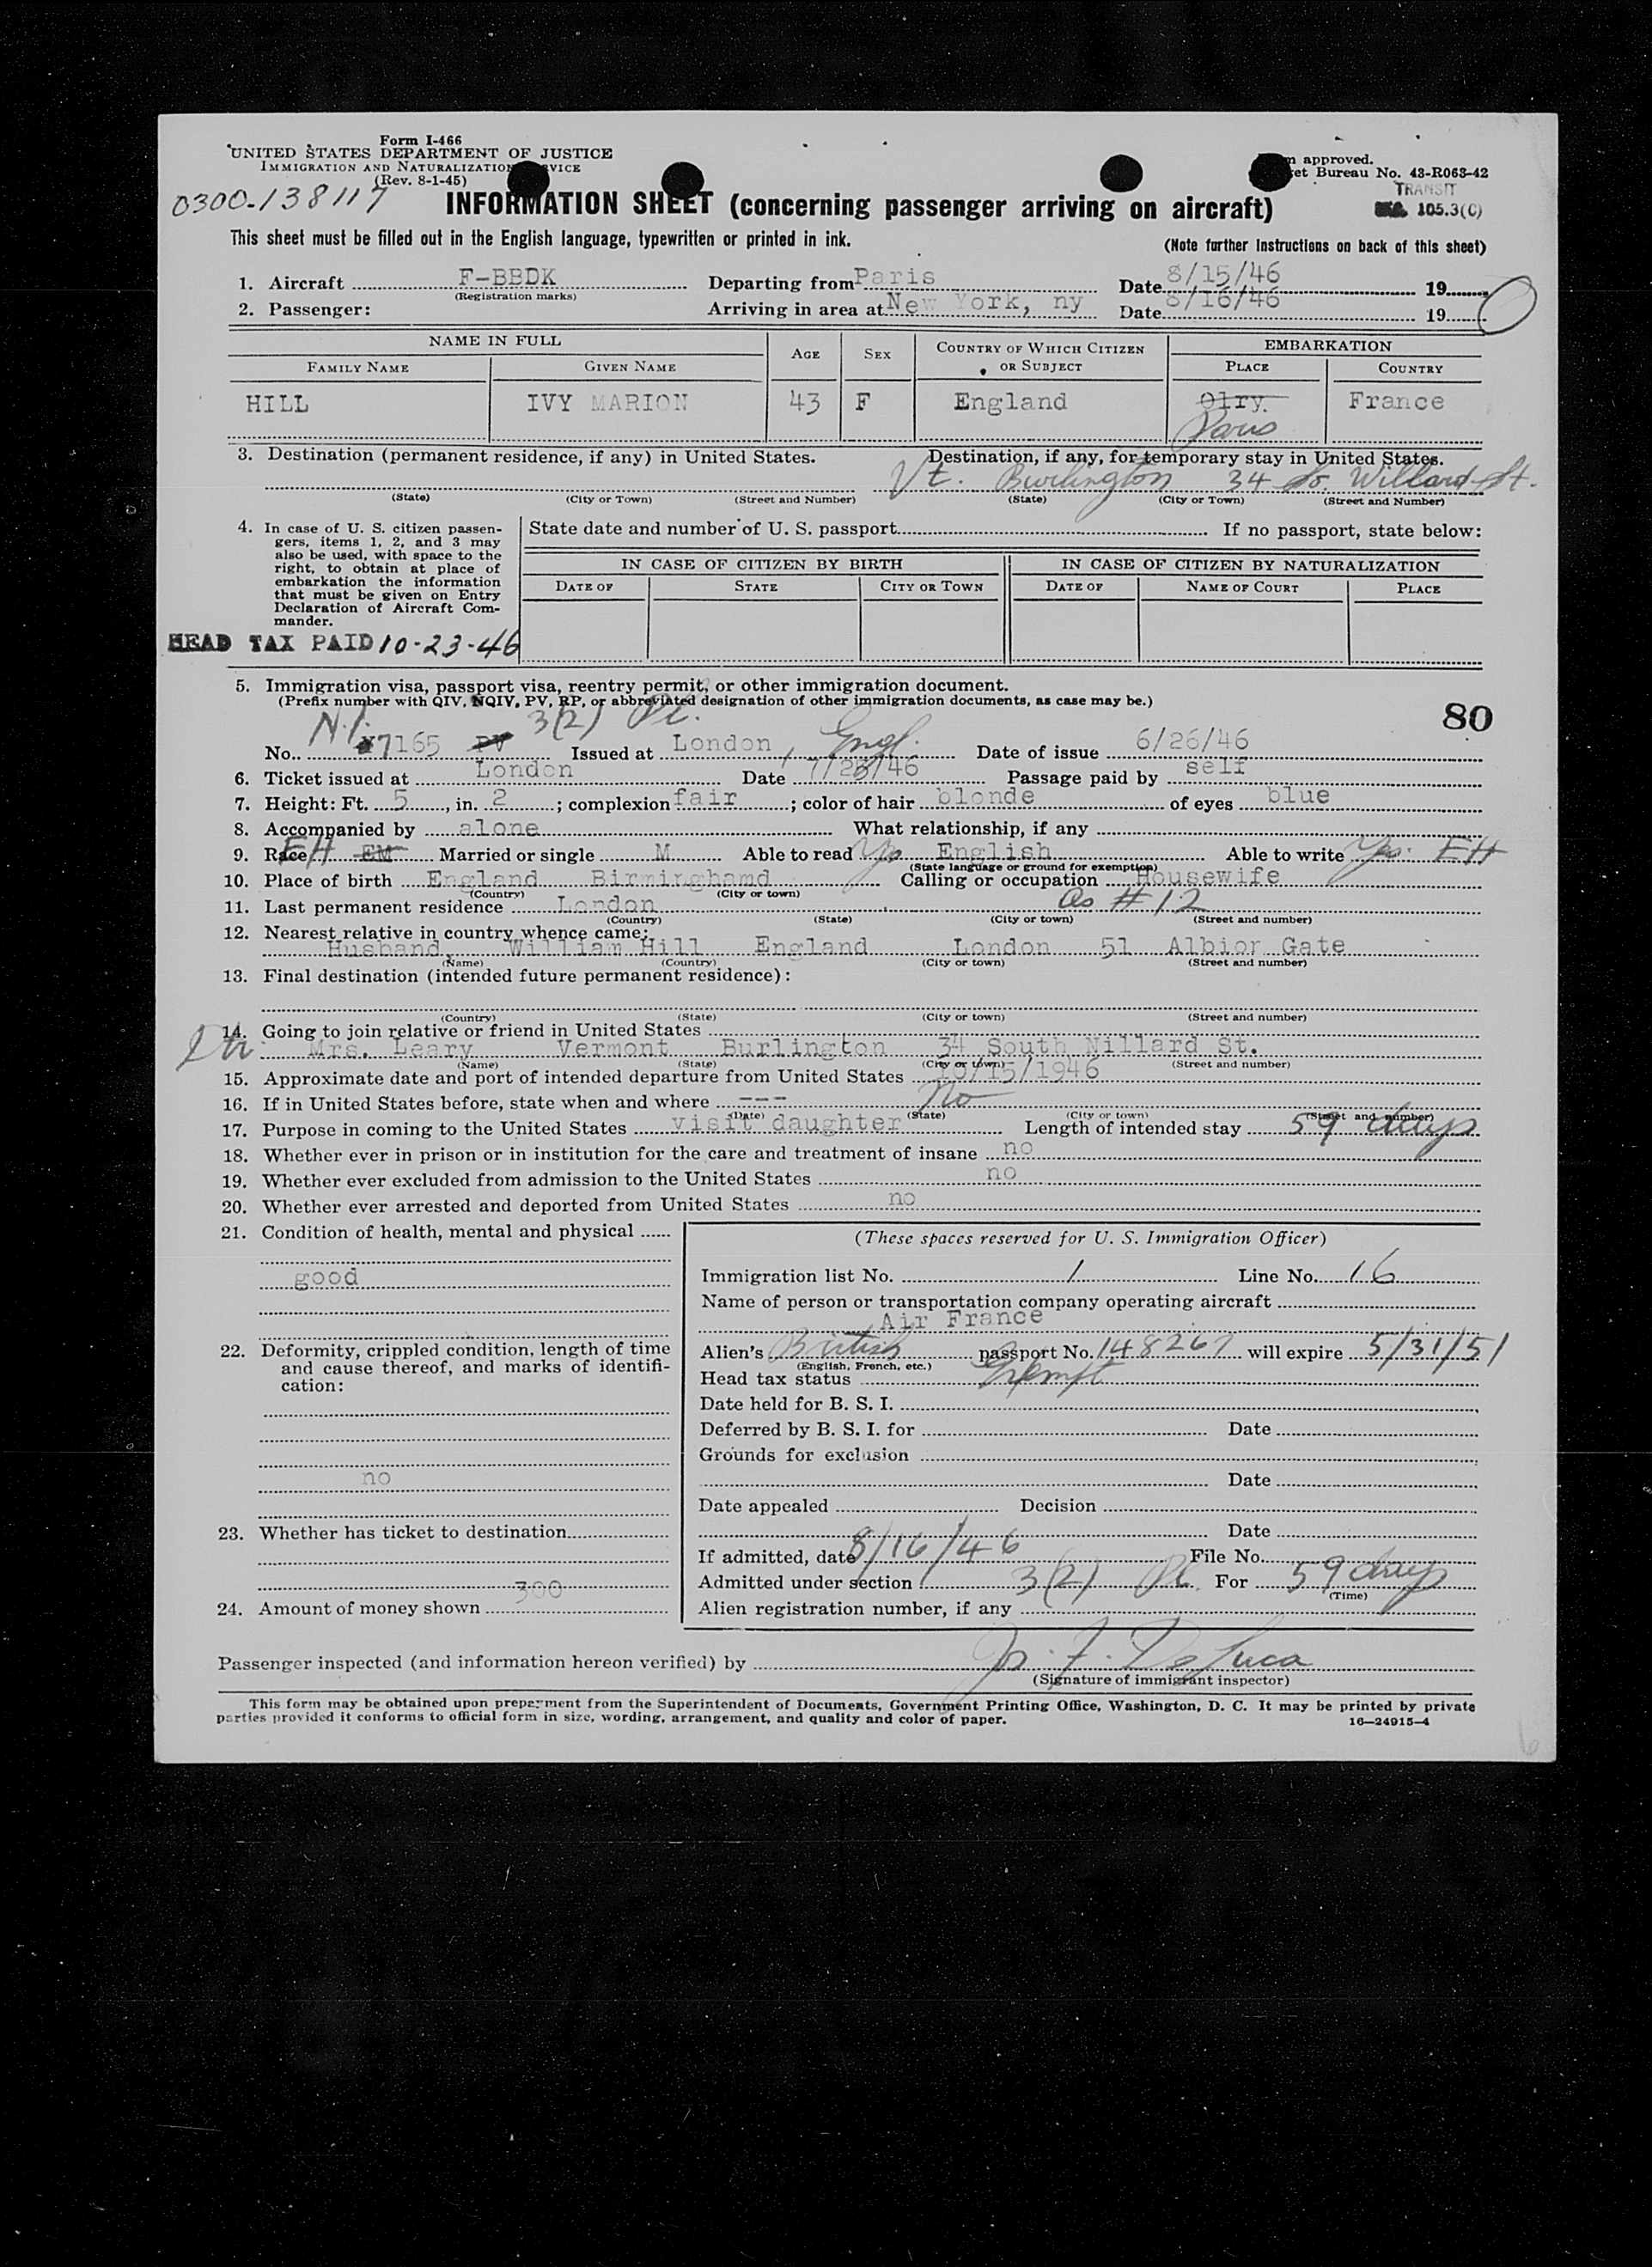 Form I-466
UNITED STATES DEPARTMENT OF JUSTICE
IMMIGRATION AND NATURALIZATION SERVICE
(Rev. 8-1-45)
approved.
Bureau No. 43-R063-42
TRANSIT
105.3(C)
0300-138117
INFORMATION SHEET (concerning passenger arriving on aircraft)
This sheet must be filled out in the English language, typewritten or printed in ink.
(Note further instructions on back of this sheet)
1. Aircraft F-BBDK Departing from Paris Date 8/15/46 19
(Registration marks)
2. Passenger: Arriving in area at New York, ny Date 8/16/46 19
NAME IN FULL AGE SEX COUNTRY OF WHICH CITIZEN OR SUBJECT EMBARKATION
FAMILY NAME GIVEN NAME PLACE COUNTRY
HILL IVY MARION 43 F England Olry France
Paris
3. Destination (permanent residence, if any) in United States. Destination, if any, for temporary stay in United States.
Vt. Burlington 34 So. Willard St.
(State) (City or Town) (Street and Number) (State) (City or Town) (Street and Number)
4. In case of U. S. citizen passengers, items 1, 2, and 3 may also be used, with space to the right, to obtain at place of embarkation the information that must be given on Entry Declaration of Aircraft Commander.
State date and number of U. S. passport If no passport, state below:
IN CASE OF CITIZEN BY BIRTH IN CASE OF CITIZEN BY NATURALIZATION
DATE OF STATE CITY OR TOWN DATE OF NAME OF COURT PLACE
HEAD TAX PAID 10-23-46
5. Immigration visa, passport visa, reentry permit, or other immigration document.
(Prefix number with QIV, NQIV, PV, RP, or abbreviated designation of other immigration documents, as case may be.)
80
N.I. 3(2) Pl.
No. 7165 PV Issued at London, Engl. Date of issue 6/26/46
6. Ticket issued at London Date 7/23/46 Passage paid by self
7. Height: Ft. 5, in. 2; complexion fair; color of hair blonde of eyes blue
8. Accompanied by alone What relationship, if any
9. Race EH EM Married or single M Able to read Yes English Able to write Yes. EH
(State language or ground for exemption)
10. Place of birth England Birminghamd Calling or occupation Housewife
(Country) (City or town)
11. Last permanent residence London as #12
(Country) (State) (City or town) (Street and number)
12. Nearest relative in country whence came:
Husband William Hill England London 51 Albior Gate
(Name) (Country) (City or town) (Street and number)
13. Final destination (intended future permanent residence):
(Country) (State) (City or town) (Street and number)
14. Going to join relative or friend in United States
Mrs. Leary Vermont Burlington 34 South Nillard St.
(Name) (State) (City or town) (Street and number)
15. Approximate date and port of intended departure from United States 10/15/1946
16. If in United States before, state when and where --- No
(Date) (State) (City or town) (Street and number)
17. Purpose in coming to the United States visit daughter Length of intended stay 59 days
18. Whether ever in prison or in institution for the care and treatment of insane no
19. Whether ever excluded from admission to the United States no
20. Whether ever arrested and deported from United States no
21. Condition of health, mental and physical
good
22. Deformity, crippled condition, length of time and cause thereof, and marks of identification:
no
23. Whether has ticket to destination
300
24. Amount of money shown
(These spaces reserved for U. S. Immigration Officer)
Immigration list No. 1 Line No. 16
Name of person or transportation company operating aircraft
Air France
Alien's British passport No. 148267 will expire 5/31/51
(English, French, etc.)
Head tax status Exempt
Date held for B. S. I.
Deferred by B. S. I. for Date
Grounds for exclusion
Date
Date appealed Decision
Date
If admitted, date 8/16/46 File No.
Admitted under section 3(2) Pl. For 59 days
(Time)
Alien registration number, if any
Passenger inspected (and information hereon verified) by F. DeLuca
(Signature of immigrant inspector)
This form may be obtained upon prepayment from the Superintendent of Documents, Government Printing Office, Washington, D. C. It may be printed by private
parties provided it conforms to official form in size, wording, arrangement, and quality and color of paper. 16—24915-4